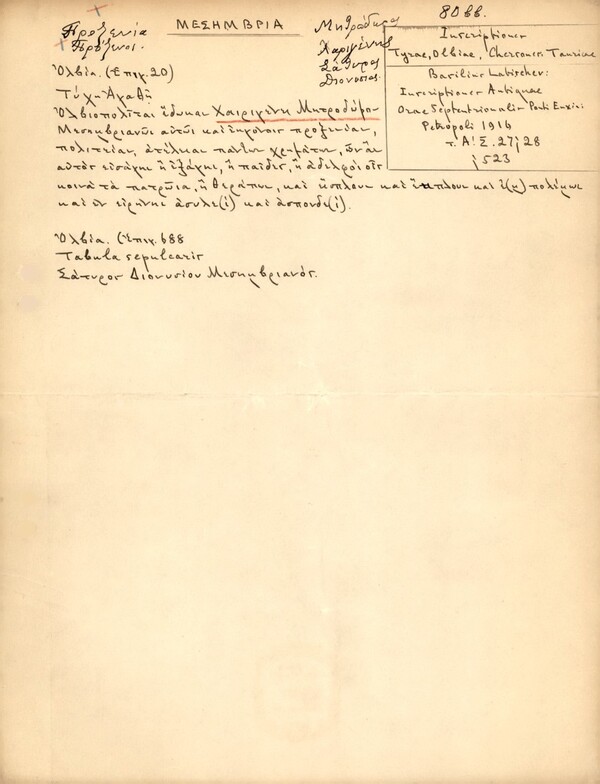 Προξενία
Πρόξενοι.
ΜΕΣΗΜΒΡΙΑ
Χαριγένης
Σάτυρος
Διονυσιος.
80 ββ.
Inscriptiones
Tyrae, Olbiae, Chersonesi Tauricae
Basilius Latischev:
Inscriptiones Antiquae
Orae Septentrionalis Ponti Euxini
Petropoli 1916
τ. Α! Σ. 27; 28
; 523
Ὀλβία. (Επιγ. 20)
Τύχη Ἀγαθῇ
Ὀλβιοπολῖται ἔδωκαν Χαιριγένῃ Μητροδώρου
Μεσημβριανῶι αὐτῶι καὶ ἐκγόνοις προξενίαν,
πολιτείαν, ἀτέλειαν πάντων χρημάτων, ὧν ἂν
αὐτὸς εἰσάγῃ ἢ ἐξάγῃ, ἢ παῖδες, ἢ ἀδελφοὶ οἷς
κοινὰ τὰ πατρῶια, ἢ θεράπων, καὶ ἔσπλουν καὶ ἔκπλουν καὶ ἐ(ν) πολέμωι
καὶ ἐν εἰρήνηι ἀσυλε(ὶ) καὶ ἀσπονδε(ί).
Ὀλβία. (Επιγ. 688
Tabula sepulcaris
Σάτυρος Διονυσίου Μεσημβριανός.